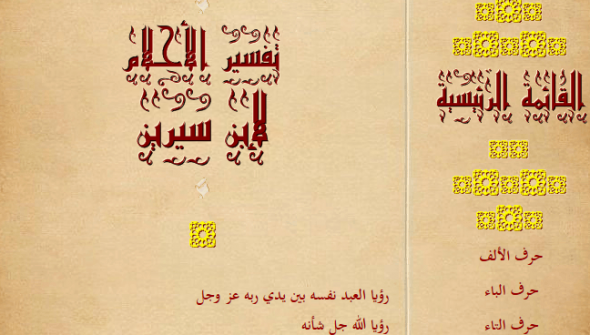 تفسير الأحلام
لإبن سيرين
رؤيا العبد نفسه بين يدي ربه عز وجل
رؤيا الله جل شأنه
القائمة الرئيسية
حرف الألف
حرف الباء
حرف التاء